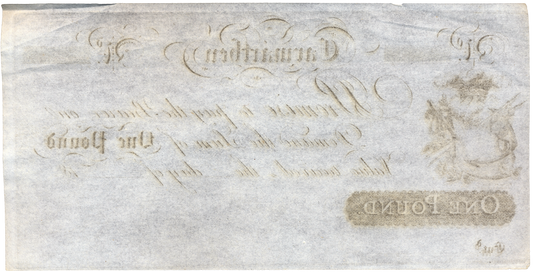 No No
Carmarthen
I Promise to pay the Bearer on
Demand the Sum of One Pound
Value received the day of
ONE POUND
Entd